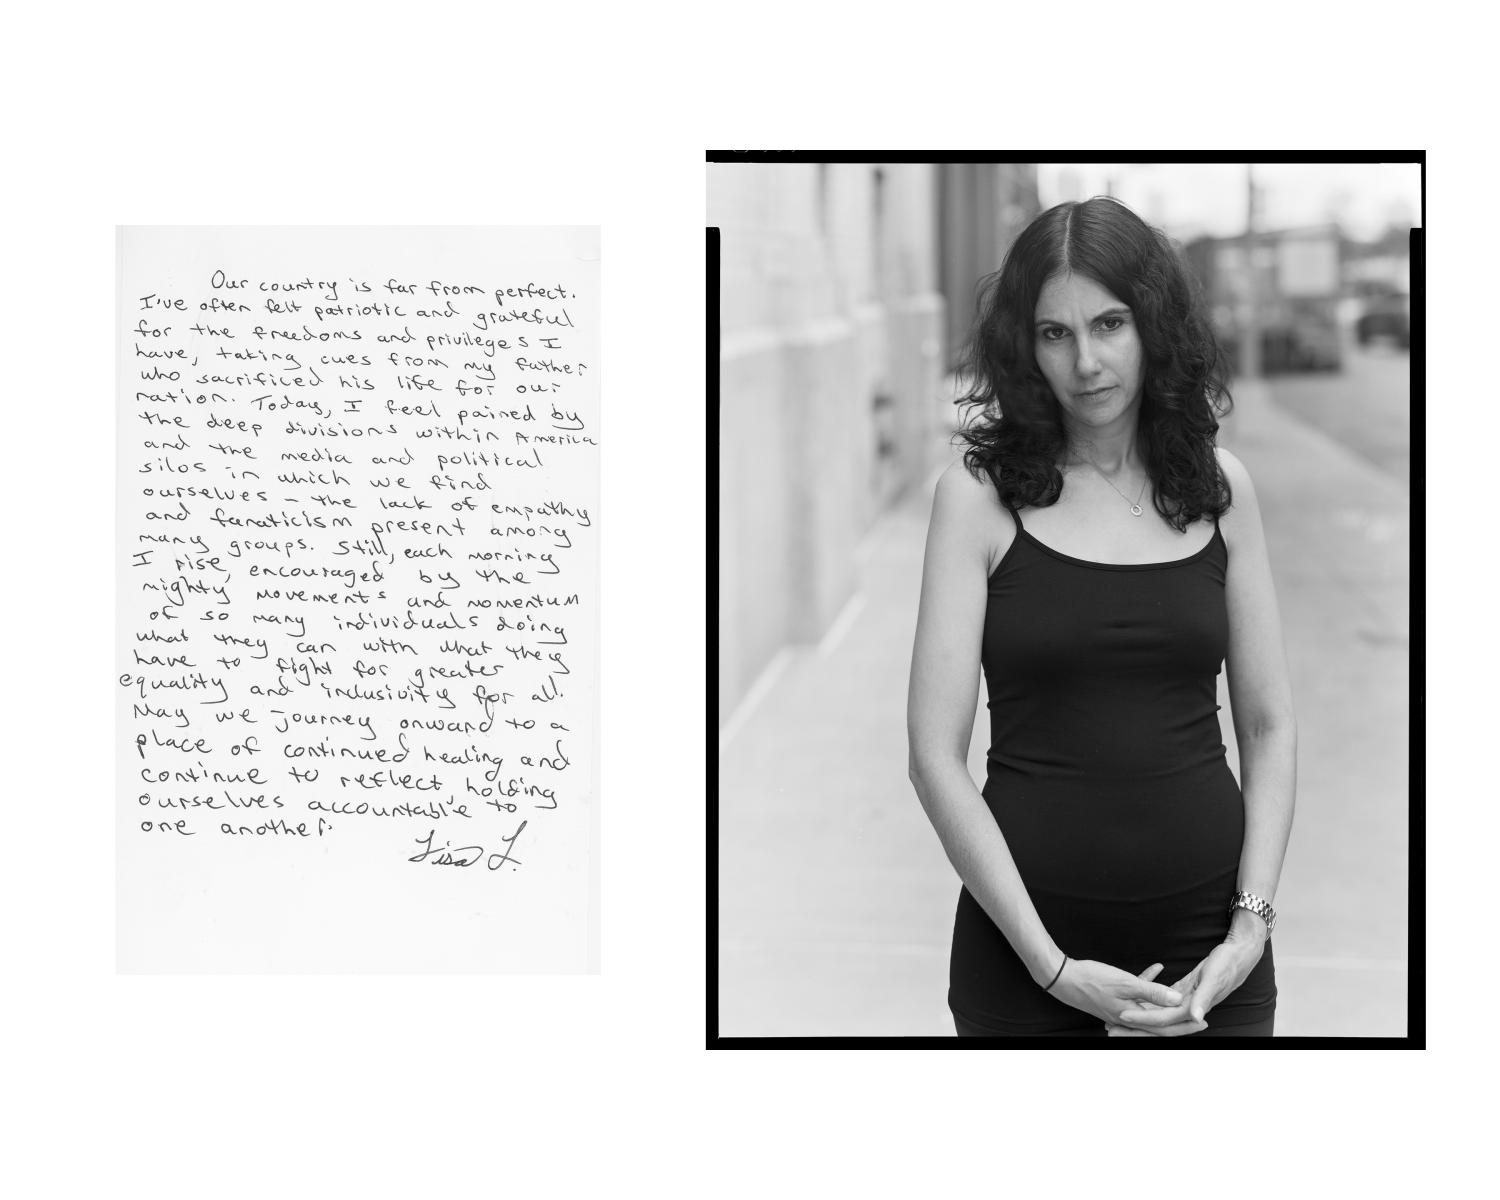 Our country is far from perfect.
I've often felt patriotic and grateful
for the freedoms and privileges I
have, taking cues from my father
who sacrificed his life for our
nation. Today, I feel pained by
the deep divisions within America
and the media and political
silos in which we find
ourselves – the lack of empathy
and fanaticism present among
many groups. Still, each morning
I rise, encouraged by the
mighty movements and momentum
of so many individuals doing
what they can with what they
have to fight for greater
equality and inclusivity for all.
May we journey onward to a
place of continued healing and
continue to reflect holding
ourselves accountable to
one another.
Lisa L.